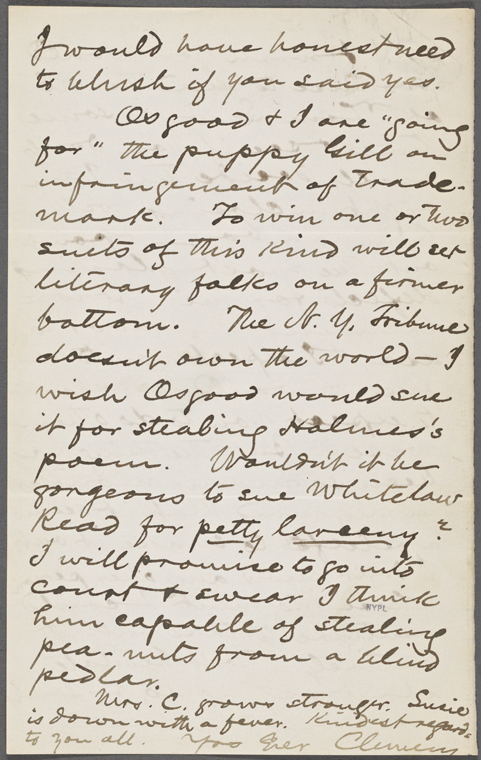 I would have honest need
to blush if you said yes.
Osgood & I are "going
for" the puppy Gill on
infringement of trade-
mark. To win one or two
suits of this kind will set
literary folks on a firmer
bottom. The N. Y. Tribune
doesn't own the world — I
wish Osgood would sue
it for stealing Holmes's
poem. Wouldn't it be
gorgeous to sue Whitelaw
Read for petty larceny?
I will promise to go into
court & swear I think
him capable of stealing
NYPL
pea-nuts from a blind
pedlar.
Mrs. C. grows stronger. Susie
is down with a fever. Kindest regards
to you all. Yrs Ever Clemens